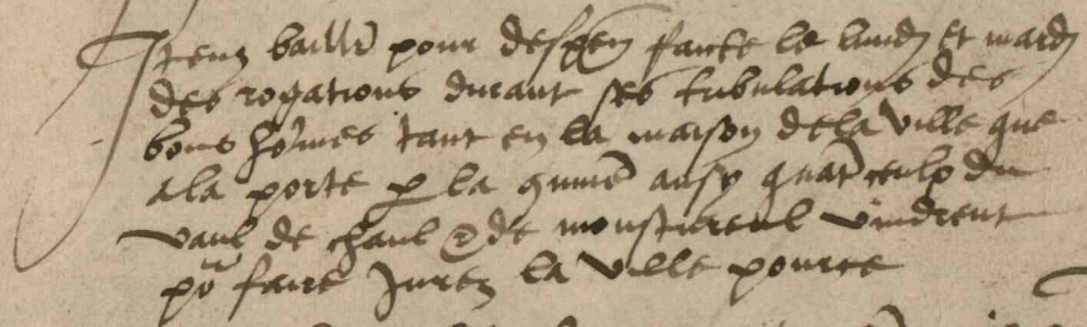 Item baille pour despen faicte le lundj et mardj
des rogations durant ses tribulations des
bons ho͞mes tant en la maison de la ville que
a la porte p la ausy quat ceulx du
vaul de chaul & de monstureul vindrent
po͞ faire Jurez la ville pource